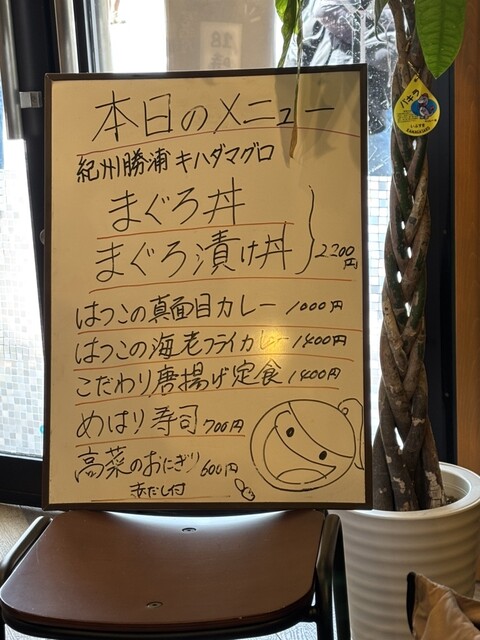 本日のメニュー
紀州勝浦キハダマグロ
まぐろ丼
まぐろ漬け丼
2200円
はつこの真面目カレー 1000円
はつこの海老フライカレー 1400円
こだわり唐揚げ定食 1400円
めはり寿司 700円
高菜のおにぎり 600円
赤だし付
パキラ